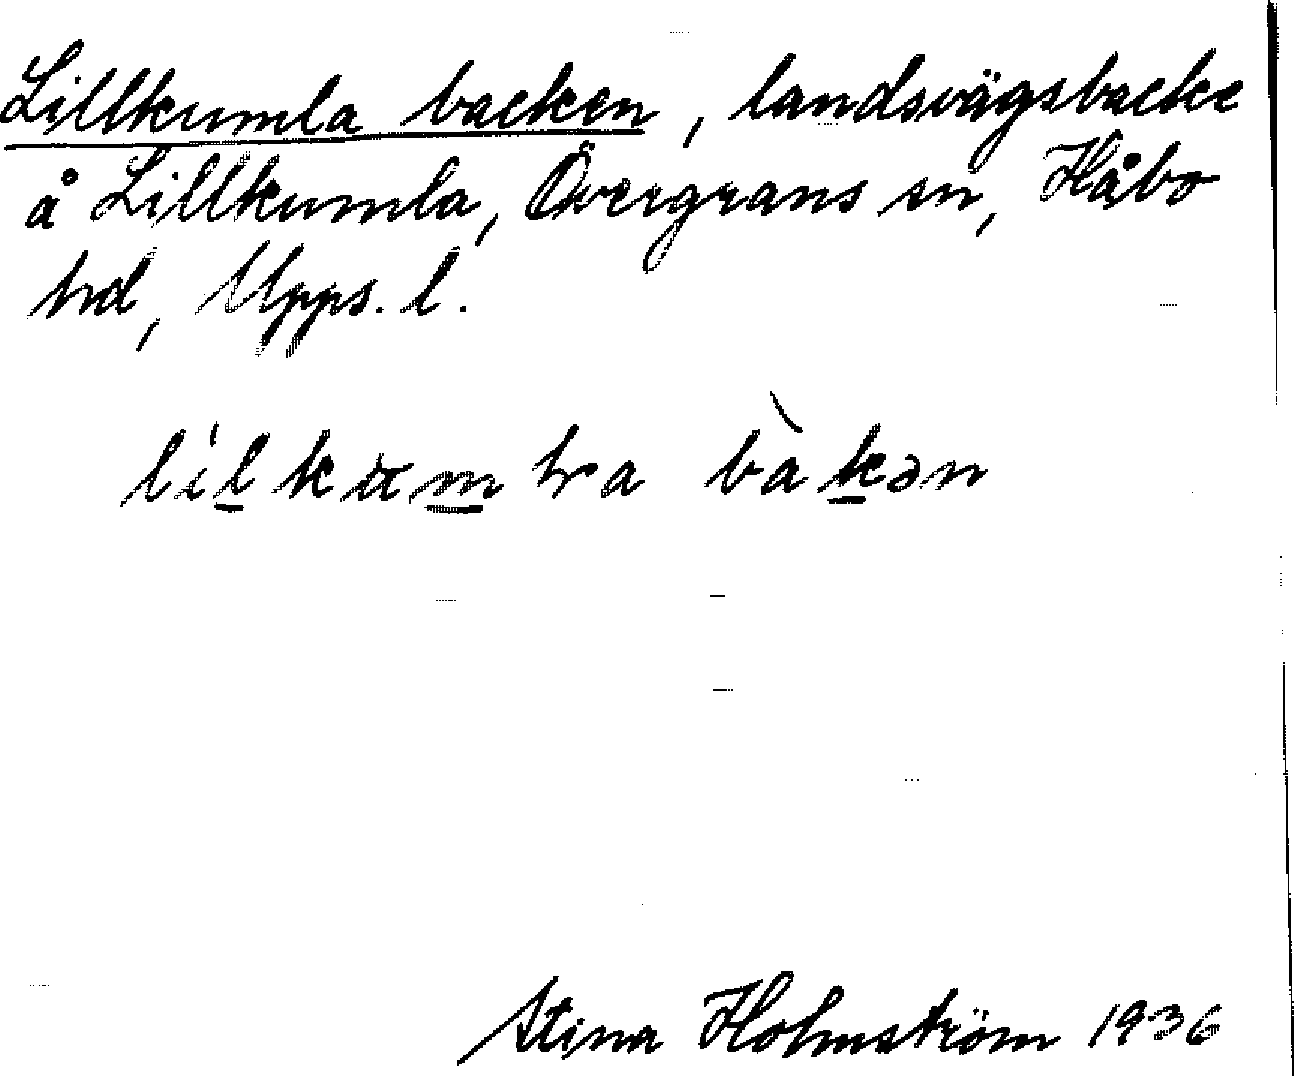 Lillkumla backen, landsvägsbacke
å Lillkumla, Övergrans sn, Håbo
hd, Upps. l.
bàkən
Stina Holmström 1936